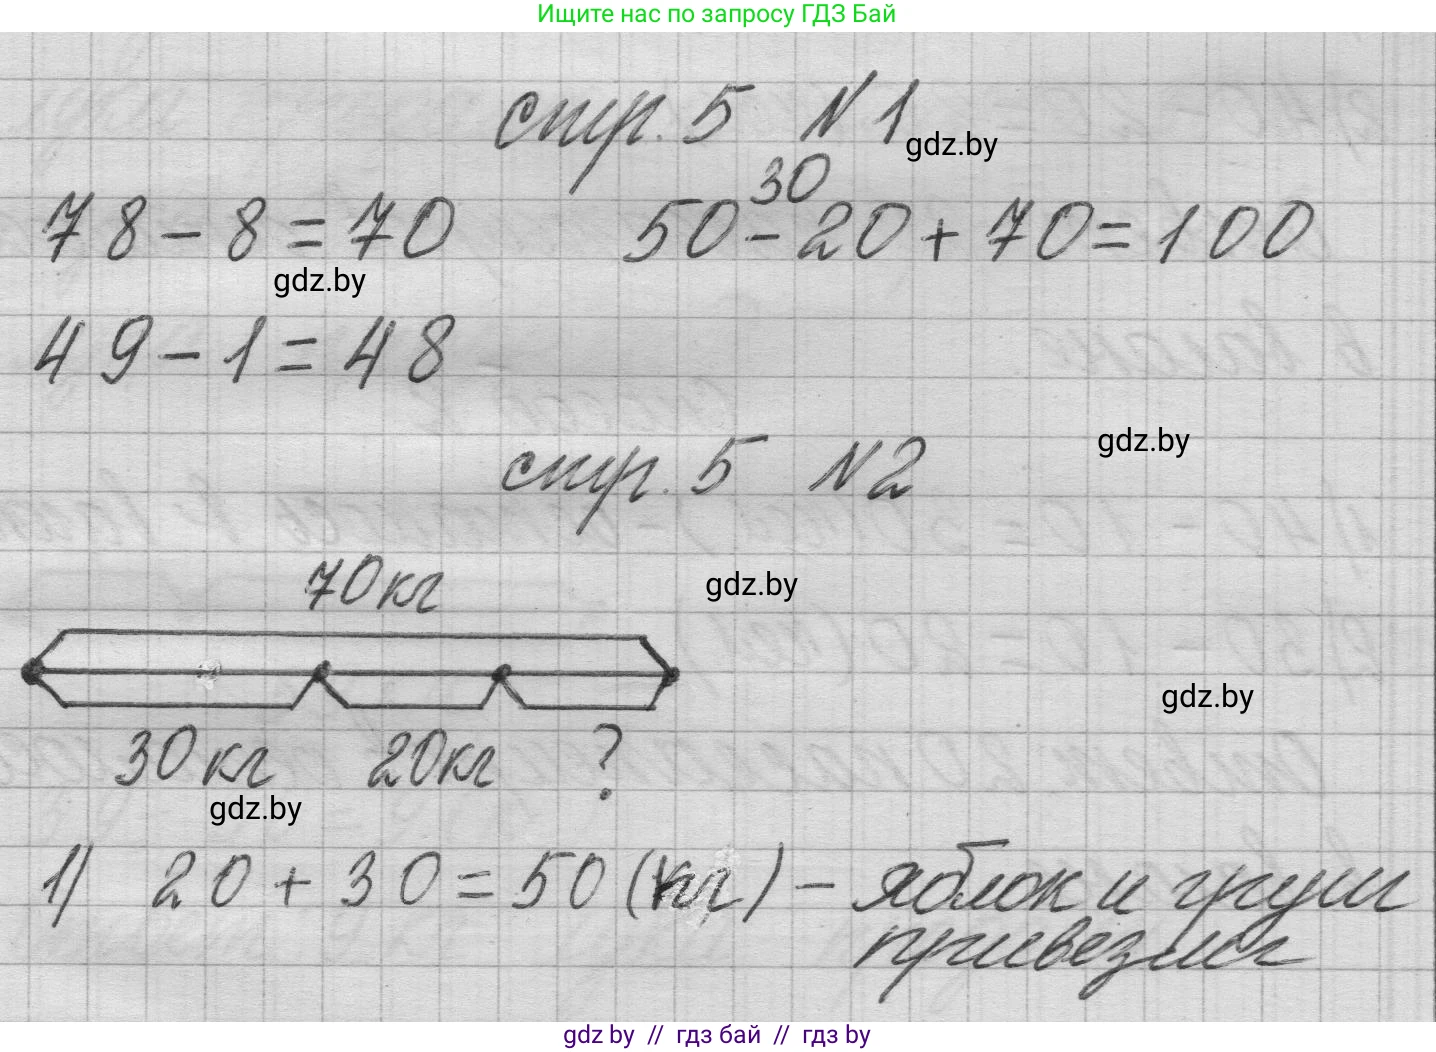 Ищите нас по запросу ГДЗ Бай
стр. 5 N 1
gdz.by
30
78 - 8 = 70 50 - 20 + 70 = 100
gdz.by
49 - 1 = 48
gdz.by
стр. 5 N 2
70 кг
gdz.by
gdz.by
30 кг 20 кг ?
gdz.by
1) 20 + 30 = 50 (кг) - яблок и груш
привезли
gdz.by // гдз бай // гдз by